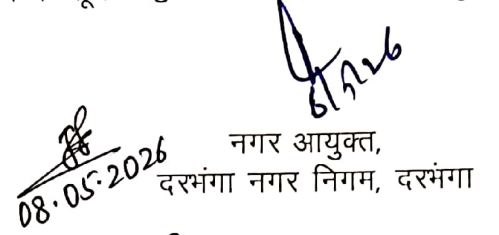 08.05.2026
नगर आयुक्त,
दरभंगा नगर निगम, दरभंगा